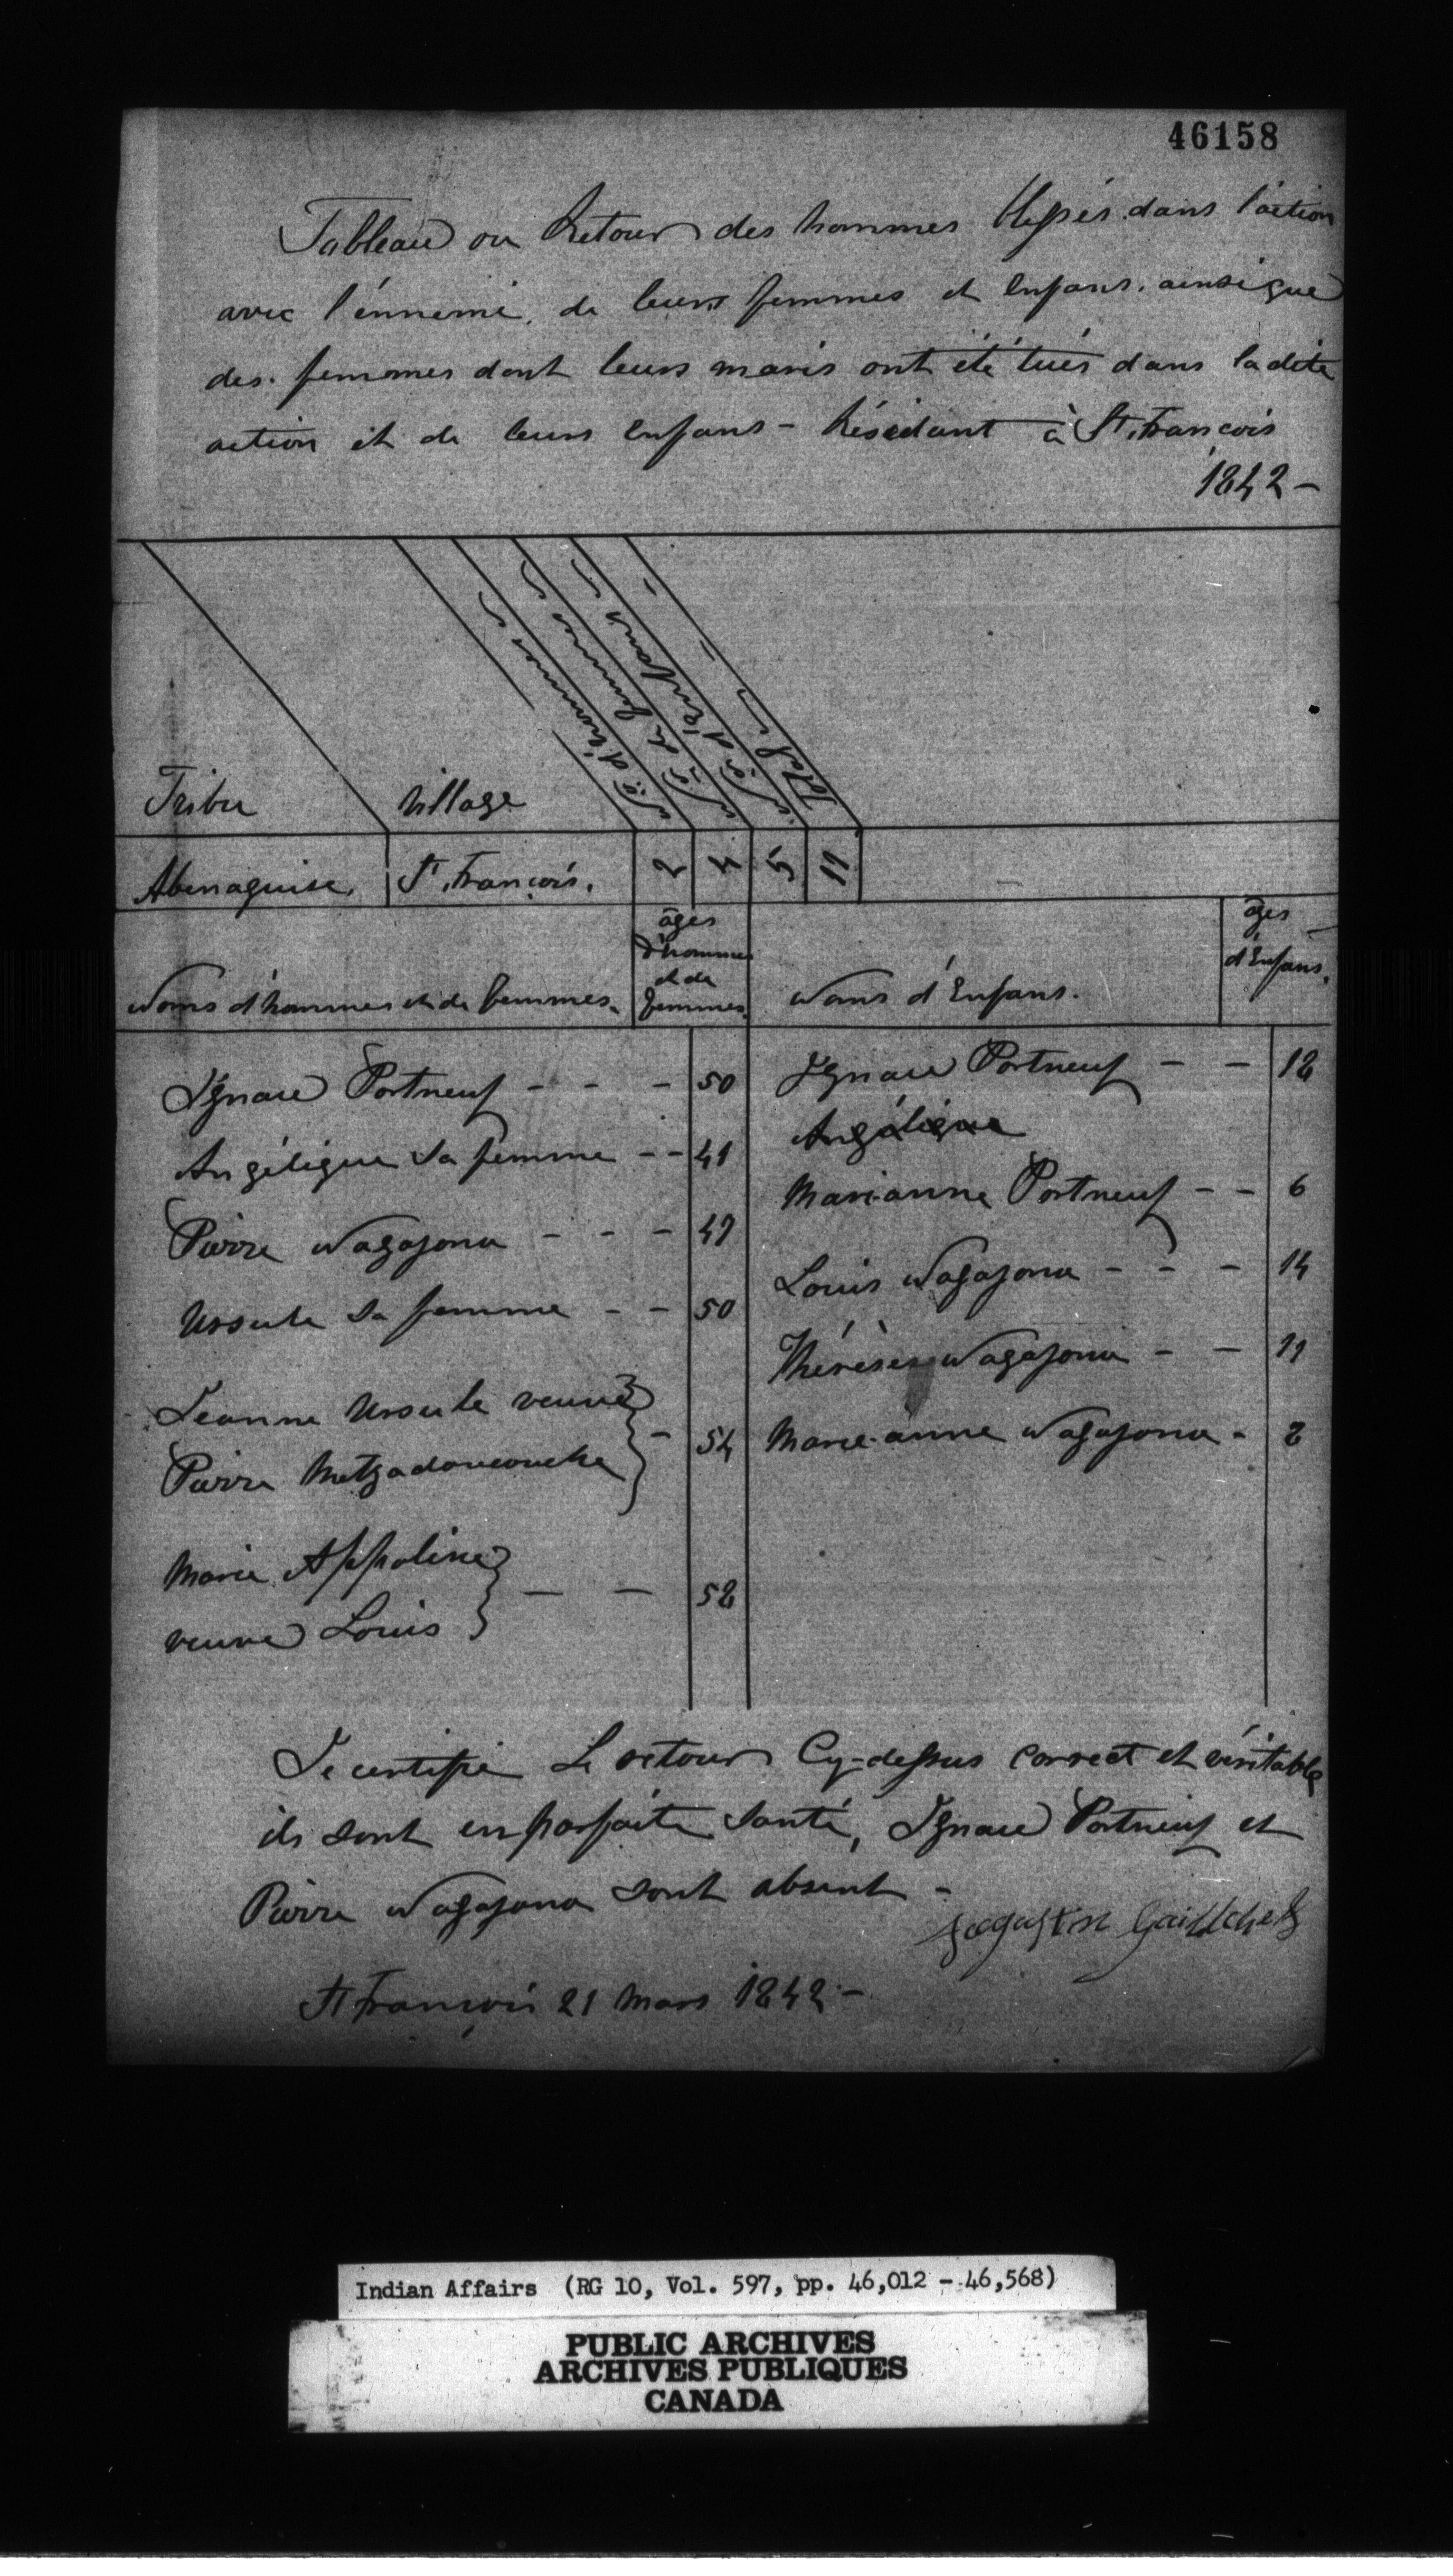 46158
Tableau ou Retour des hommes blessés dans l'action
avec l'énnemi, de leurs femmes et Enfans, ainsi que
des femmes dont leurs maris ont été tués dans la dite
action et de leurs Enfans – Résidant à St. François
1842 –
Tribu Village No. d'hommes No. de femmes No. d'Enfans Total
Abenaquise, St. François. 2 4 5 11
Noms d'hommes et de femmes. âges d'hommes et de femmes. Noms d'Enfans. âges d'Enfans.
Ignace Portneuf - - - 50 Ignace Portneuf - - 12
Angélique
Angélique Sa femme - - 41 Marianne Portneuf - - 6
Pierre Wagajona - - - 47 Louis Wagajona - - - 14
Ursule Sa femme - - 50 Thérèse Wagajona - - 11
Jeanne Ursule veuve
Pierre - 54 Marie-anne Wagajona - 2
Marie Appoline
veuve Louis - - 52
Je certifie Le retour Cy-dessus correct et véritable
ils sont en parfaite Santé, Ignace Portneuf et
Pierre Wagajona sont absent -
St François 21 Mars 1842 -
Indian Affairs (RG 10, Vol. 597, pp. 46,012 - 46,568)
PUBLIC ARCHIVES
ARCHIVES PUBLIQUES
CANADA